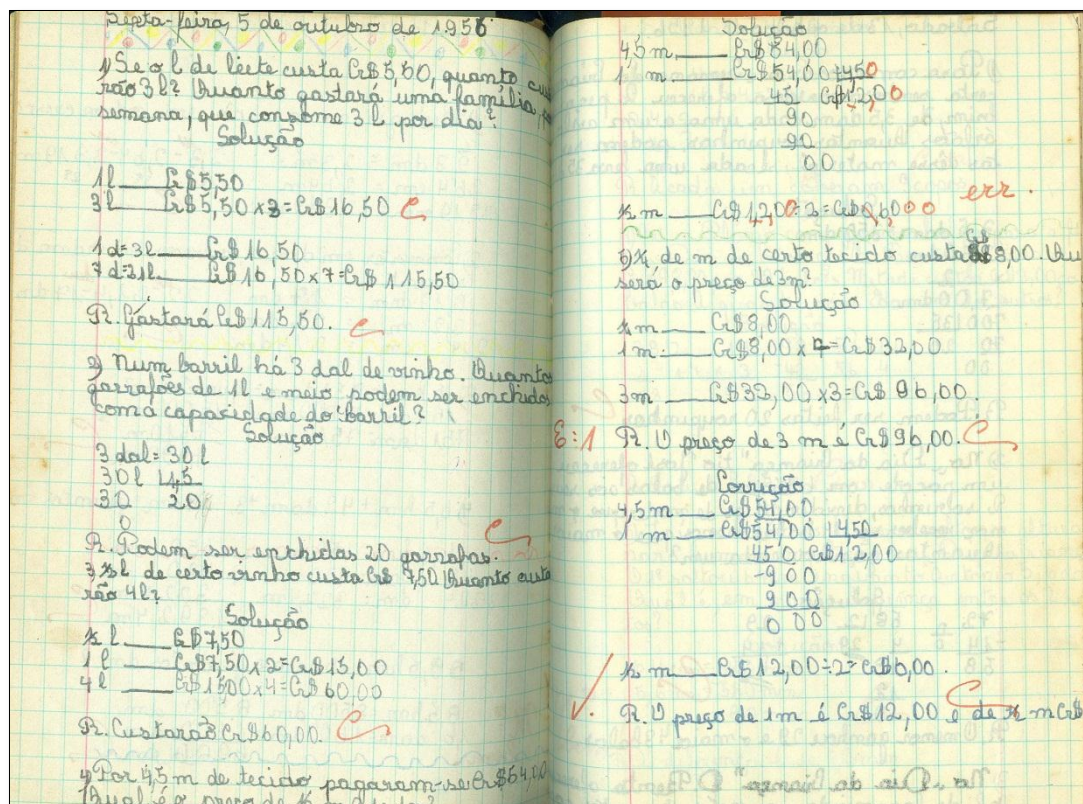 Sexta-feira, 5 de outubro de 1956
1) Se o l de leite custa Cr$5,50, quanto cus
rão 3l? Quanto gastará uma família, por
semana, que consome 3 l por dia?
Solução
1l Cr$5,50
3l Cr$5,50 x 3=Cr$16,50 C
1d=3l Cr$16,50
7d=21l Cr$16,50x7=Cr$115,50
R. Gastará Cr$115,50. C
2) Num barril há 3 dal de vinho. Quantos
garrafões de 1l e meio podem ser enchidos
com a capacidade do barril?
Solução
3 dal= 30 l
30 l 1,5
30 20
0
R. Podem ser enchidas 20 garrafas. C
3 ½ l de certo vinho custa Cr$ 7,50 Quanto custa
rão 4l?
Solução
½ l Cr$7,50
1 l Cr$7,50x2=Cr$15,00
4 l Cr$15,00x4=Cr$60,00
R. Custarão Cr$60,00. C
4) Por 4,5 m de tecido pagaram-se Cr$54,00
Qual é o preço de
Solução
4,5 m Cr$54,00
1 m Cr$54,00÷450
45 Cr$12,00
90
90
00
err.
½ m Cr$1,200÷2=Cr$0,6000
5) ¼ de m de certo tecido custa Cr$8,00. Qu
será o preço de 3m?
Solução
¼ m Cr$8,00
1 m Cr$8,00 x 4=Cr$32,00
3m Cr$32,00 x3=Cr$ 96,00.
E:1 R. O preço de 3 m é Cr$96,00. C
Correção
4,5m Cr$54,00
1 m Cr$54,00 4,50
450 Cr$12,00
-900
900
000
½ m Cr$12,00÷2=Cr$6,00.
R. O preço de 1m é Cr$12,00 e de ½ m Cr$